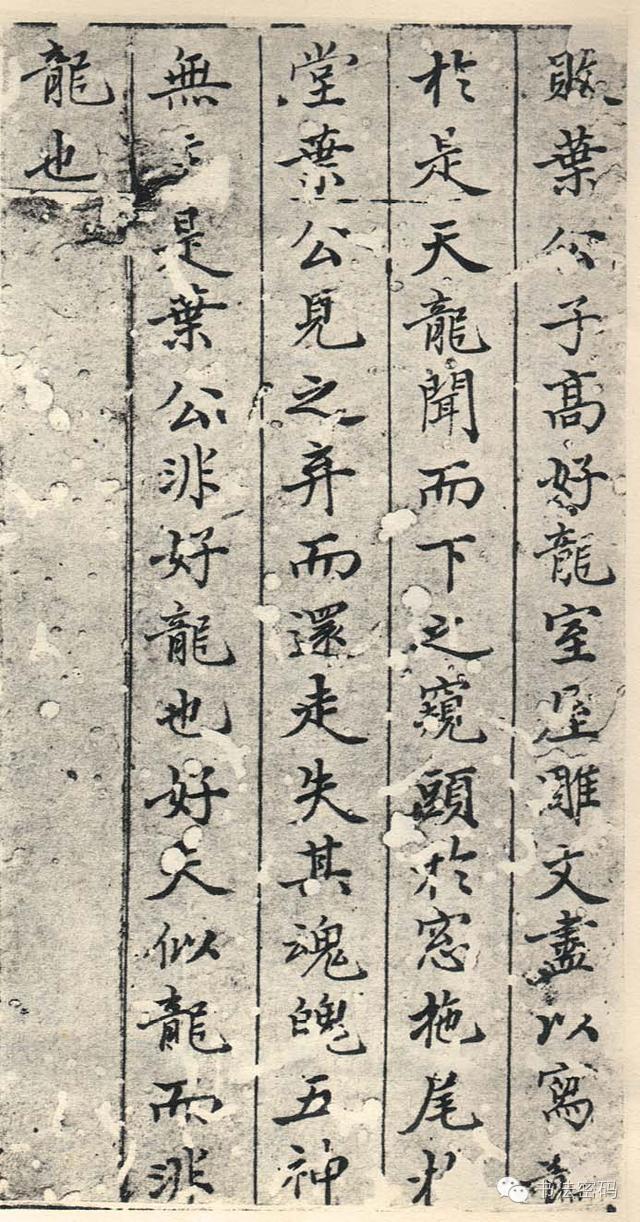 葉公子高好龍室屋雕文盡以寫
於是天龍聞而下之窺頭於窓拖尾
堂葉公見之弃而還走失其魂魄五神
無是葉公非好龍也好夫似龍而非
龍也
书法密码